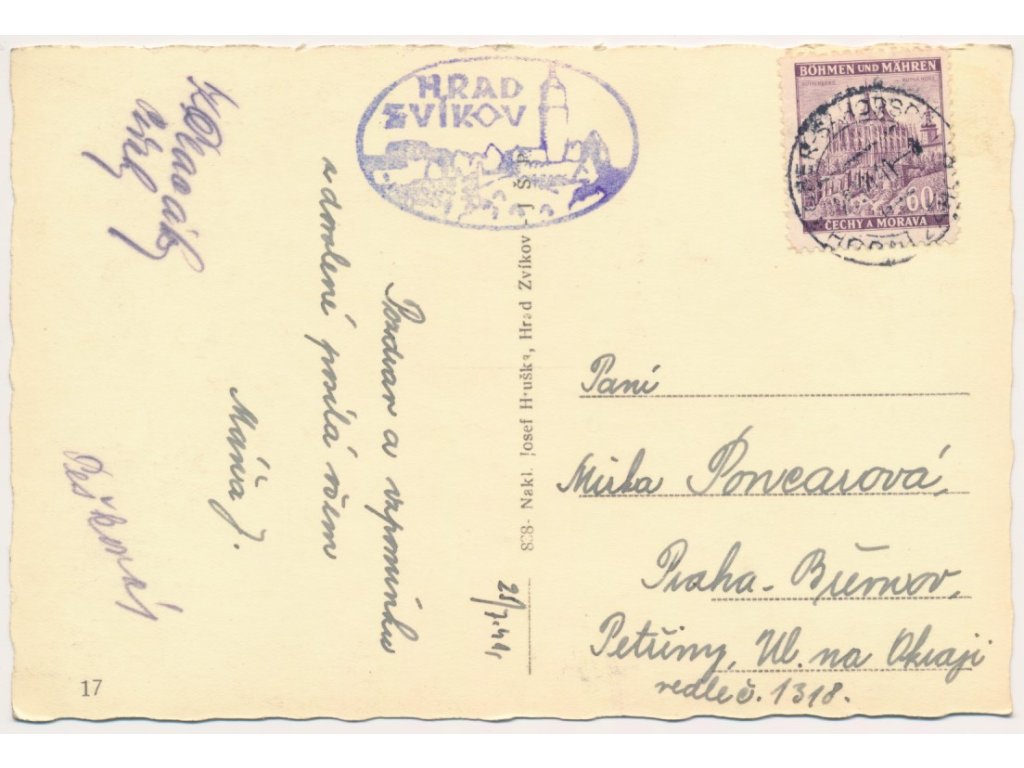 HRAD
ZVÍKOV
BÖHMEN UND MÄHREN
60
ČECHY A MORAVA
Pozdrav a vzpomínku
z dovolené posílá všem
Máňa J.
Pešková
28/7.44
Nakl. Josef Hruška, Hrad Zvíkov
Paní
Mirka Poncarová,
Praha - Břevnov,
Petřiny, Ul. na Okraji
vedle č. 1318.
17